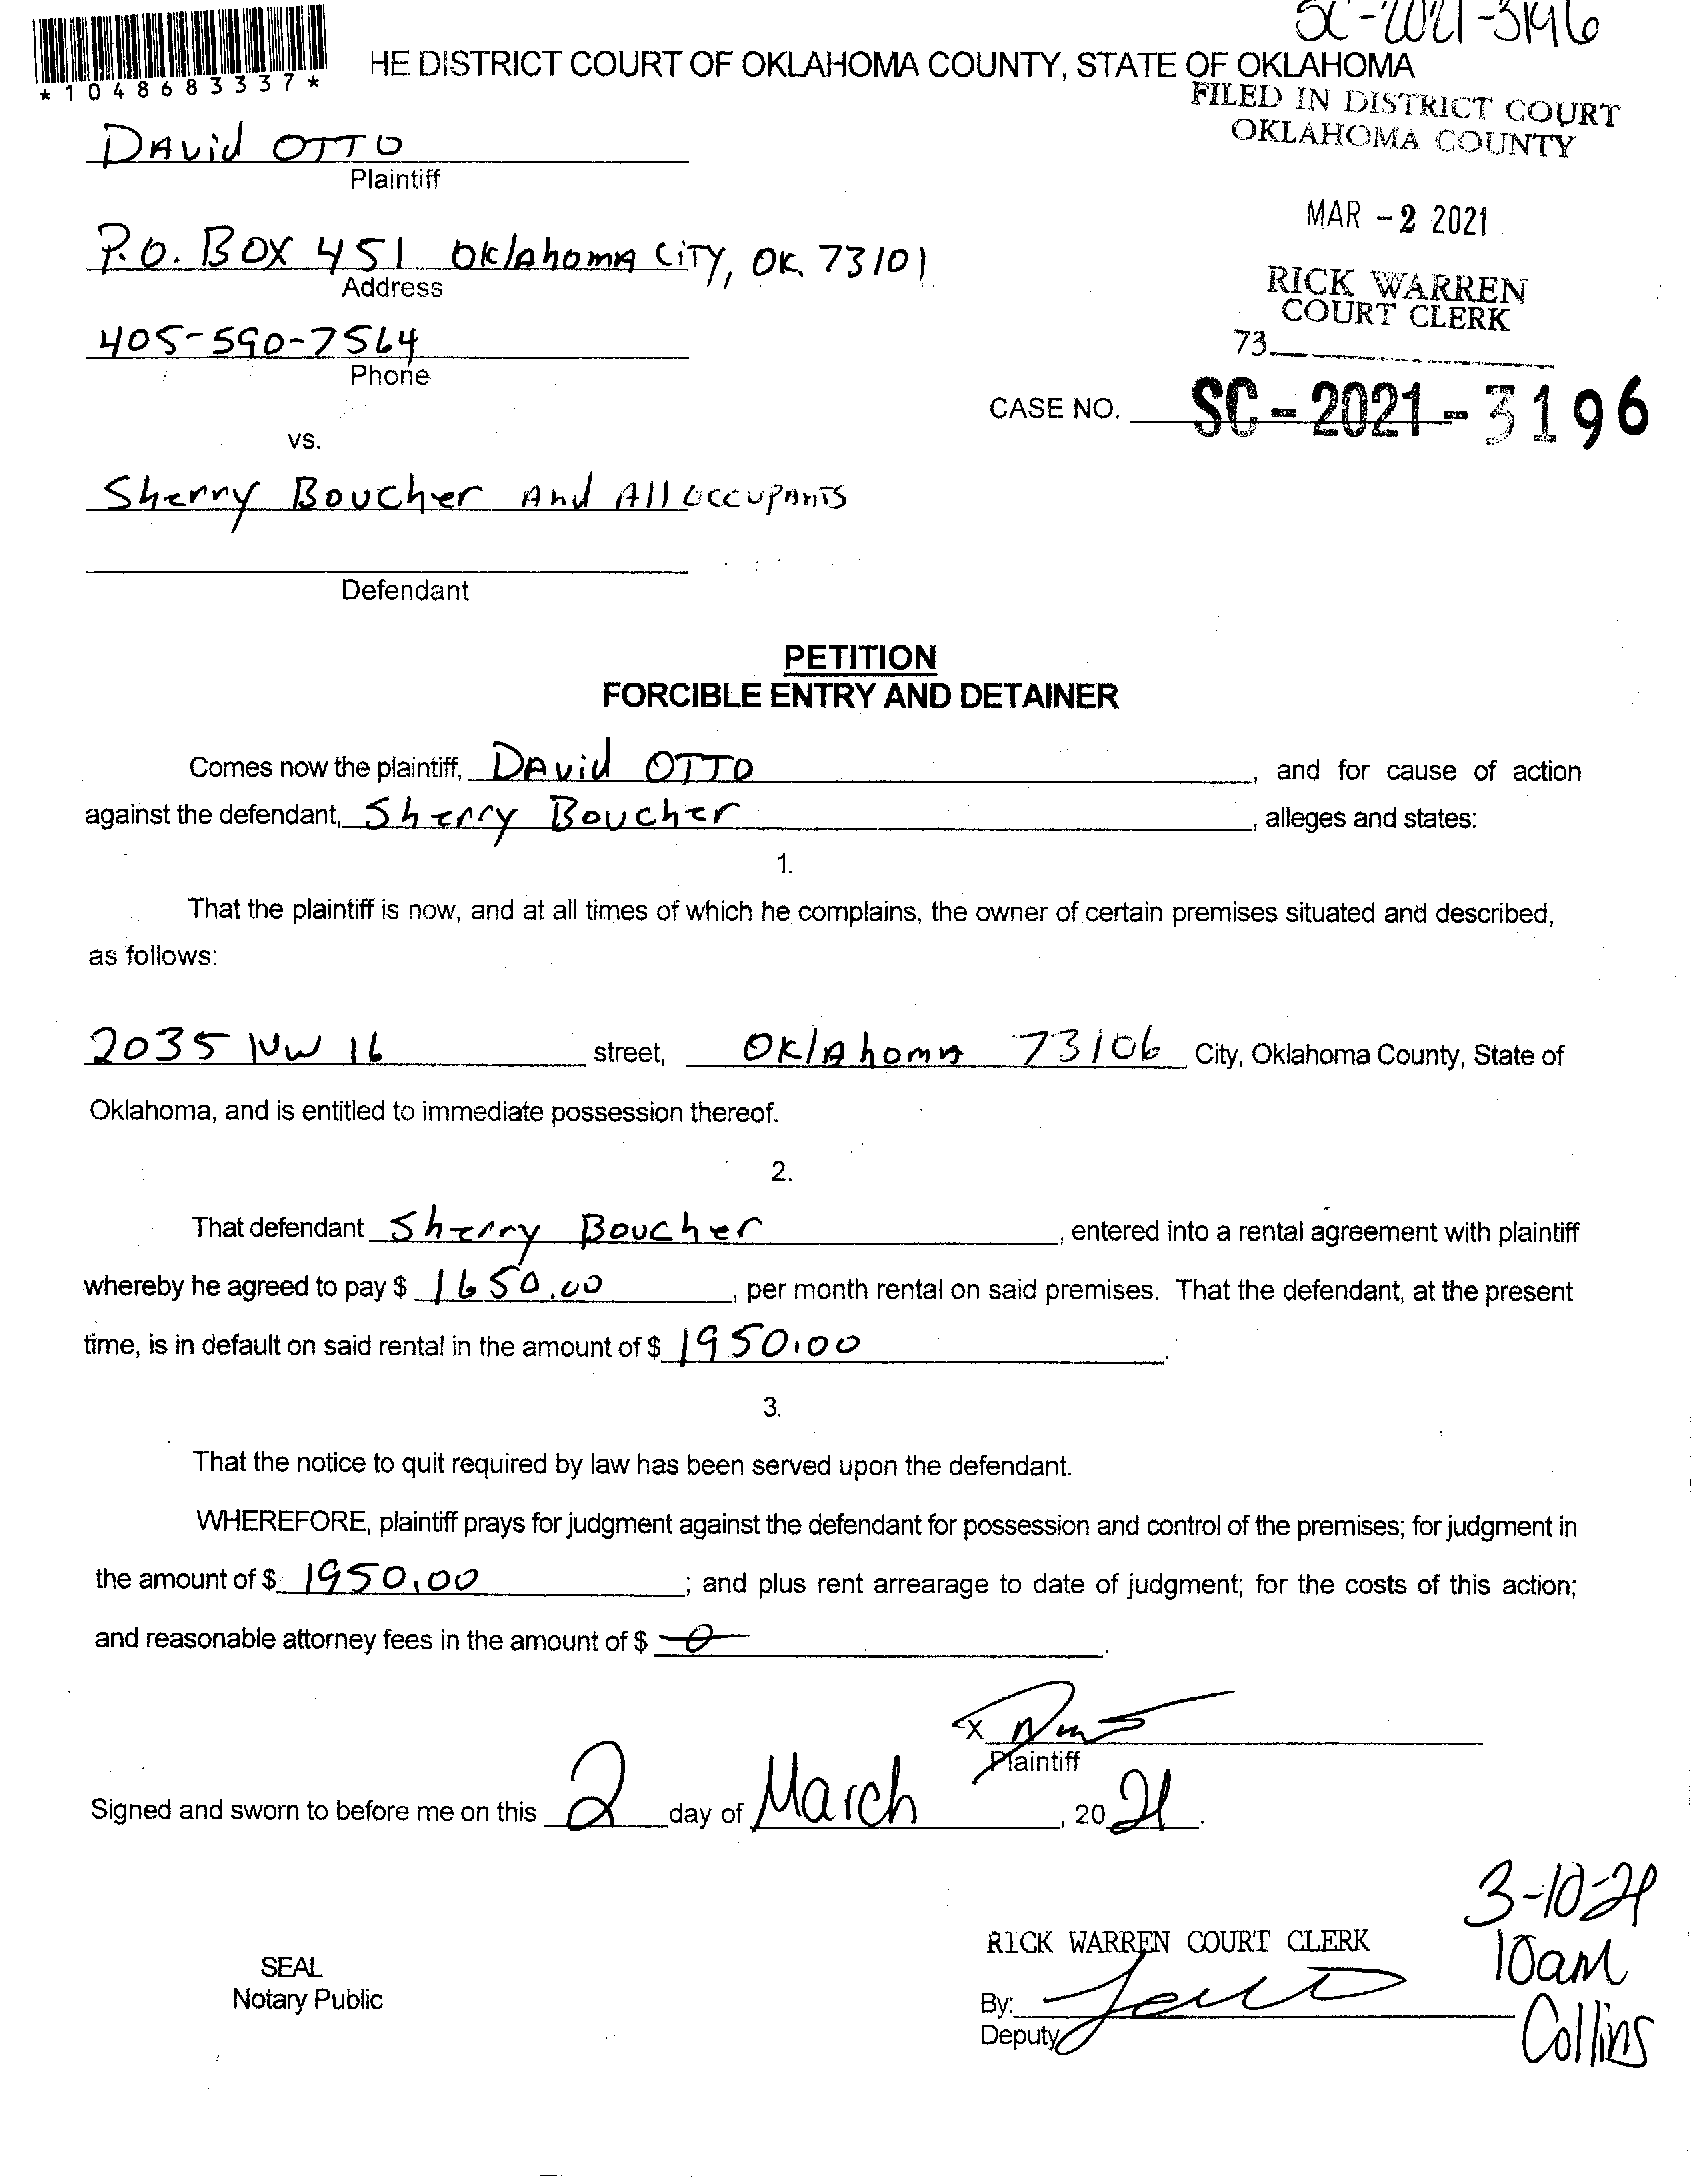 SC-2021-3196
HE DISTRICT COURT OF OKLAHOMA COUNTY, STATE OF OKLAHOMA
*1048683337*
FILED IN DISTRICT COURT
OKLAHOMA COUNTY
DAvid OTTO
Plaintiff
MAR -2 2021
P.O. BOX 451 Oklahoma CiTY, OK 73101
Address
RICK WARREN
COURT CLERK
405-590-7564
Phone
73
CASE NO. SC-2021-3196
vs.
Sherry Boucher And All OccupAnTS
Defendant
PETITION
FORCIBLE ENTRY AND DETAINER
Comes now the plaintiff, DAvid OTTO, and for cause of action
against the defendant, Sherry Boucher, alleges and states:
1.
That the plaintiff is now, and at all times of which he complains, the owner of certain premises situated and described,
as follows:
2035 NW 16 street, Oklahoma 73106 City, Oklahoma County, State of
Oklahoma, and is entitled to immediate possession thereof.
2.
That defendant Sherry Boucher, entered into a rental agreement with plaintiff
whereby he agreed to pay $ 1650.00, per month rental on said premises. That the defendant, at the present
time, is in default on said rental in the amount of $ 1950.00.
3.
That the notice to quit required by law has been served upon the defendant.
WHEREFORE, plaintiff prays for judgment against the defendant for possession and control of the premises; for judgment in
the amount of $ 1950.00; and plus rent arrearage to date of judgment; for the costs of this action;
and reasonable attorney fees in the amount of $ 0.
x
Plaintiff
Signed and sworn to before me on this 2 day of March, 2021.
3-10-21
10am
Collins
RICK WARREN COURT CLERK
SEAL
Notary Public
By:
Deputy